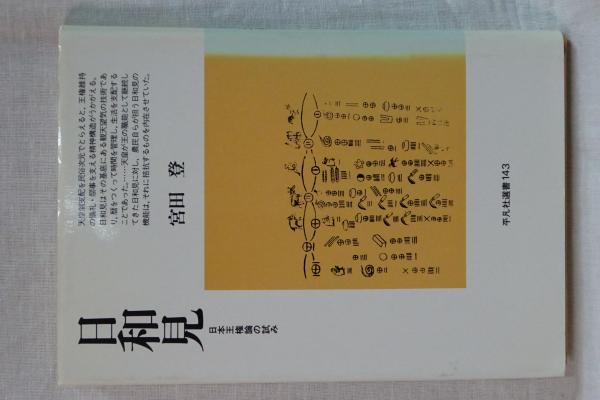 日和見
日本王権論の試み
天皇制支配を民俗次元でとらえると、王権維持
の儀礼・祭事を支える精神構造がうかがえる。
日和見はその基底にある観天望気の技術であ
り、暦をつくって時間を管理し、生活を支配する
ことであった。……天皇が王の職能として継続し
てきた日和見に対し、農民自らが担う日和見の
機能は、それに拮抗するものを内在させていた。
宮田 登
平凡社選書143